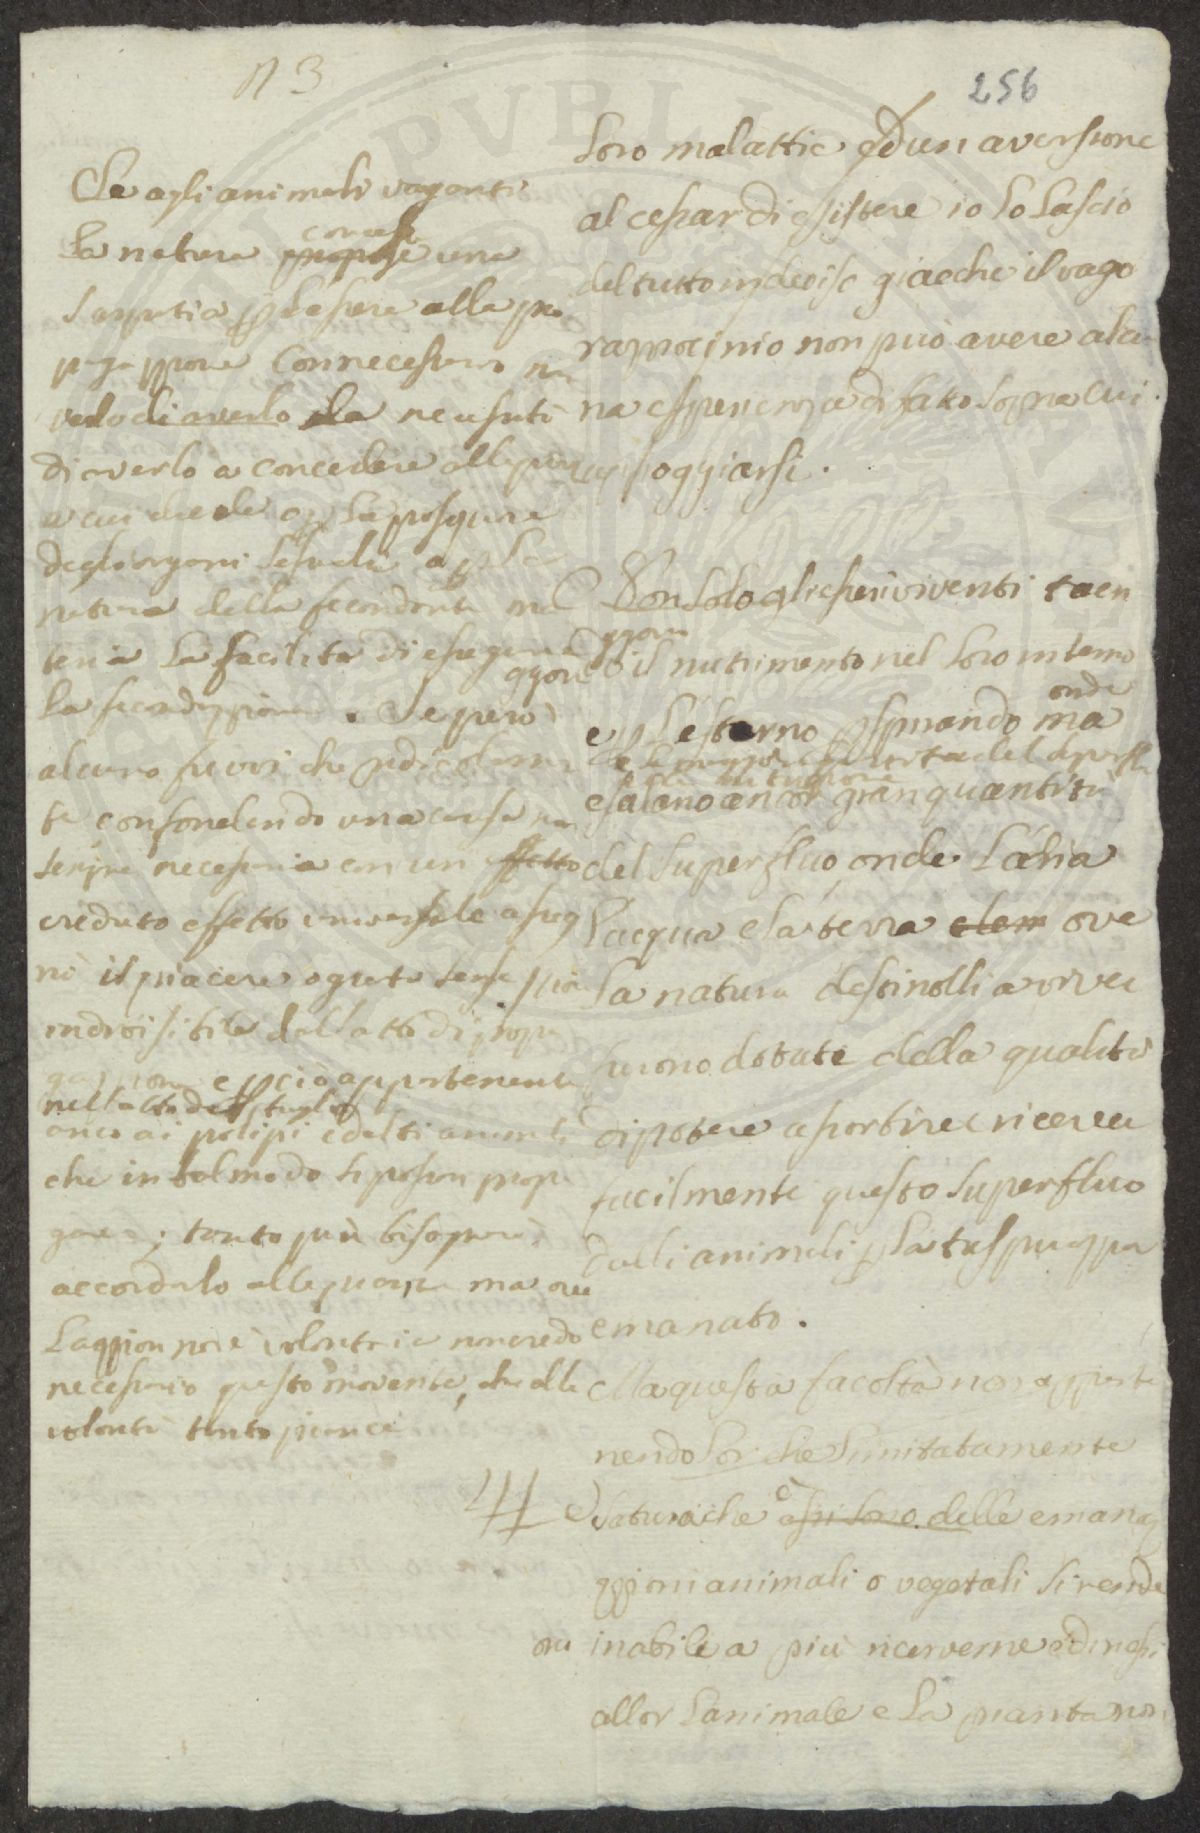 n 3
256
Se agli animali vaganti
la natura propose una
concesse
simpatia per essere alla pro
pagazzione connecessaria non
vedo di averlo la necessità
di averlo a concedere alle piante
a cui diede o per la
degli organi sessuali o per la
natura della fecondante ma
teria la facilità di eseguire
la fecondazzione. Se però
alcuno fuvvi che ridicolamen
te confondendo una causa non
sempre necessaria con un effetto
creduto effetto universale asseg
nò il piacere o grata sensazione
indivisibile dall atto di propa
gazzione e perciò appartenente
nell atto del taglio
anco ai polipi ed altri animali
che in tal modo si posson propa
gare; tanto più bisognerà
accordarlo alle piante ma ove
l'azzion non è volontaria non credo
necessario questo movente, che alla
volontà tanto piace
loro malattie ed un aversione
al cessar di esistere io lo lascio
del tutto indeciso giacche il vago
razziocinio non può avere alcu
na esperienza di fatto sopra cui
appoggiarsi.
Non solo gli esseri viventi traen
ggono
il nutrimento nel loro interno
onde
e per l'esterno spirando ma
esalano ancor gran quantità
del superfluo, onde l'aria
l'acqua e la terra elem ove
la natura destinolli a viver
furono dotate della qualità
di potere assorbire e ricever
facilmente questo superfluo
dalli animali per la traspirazzion
emanato.
Ma questa facoltà non apparte
nendo lor che limitatamente
è
saturo che assi sono delle emana
zzioni animali o vegetali si rende
inabile a più riceverne ed in essi
allor l'animale e la pianta non